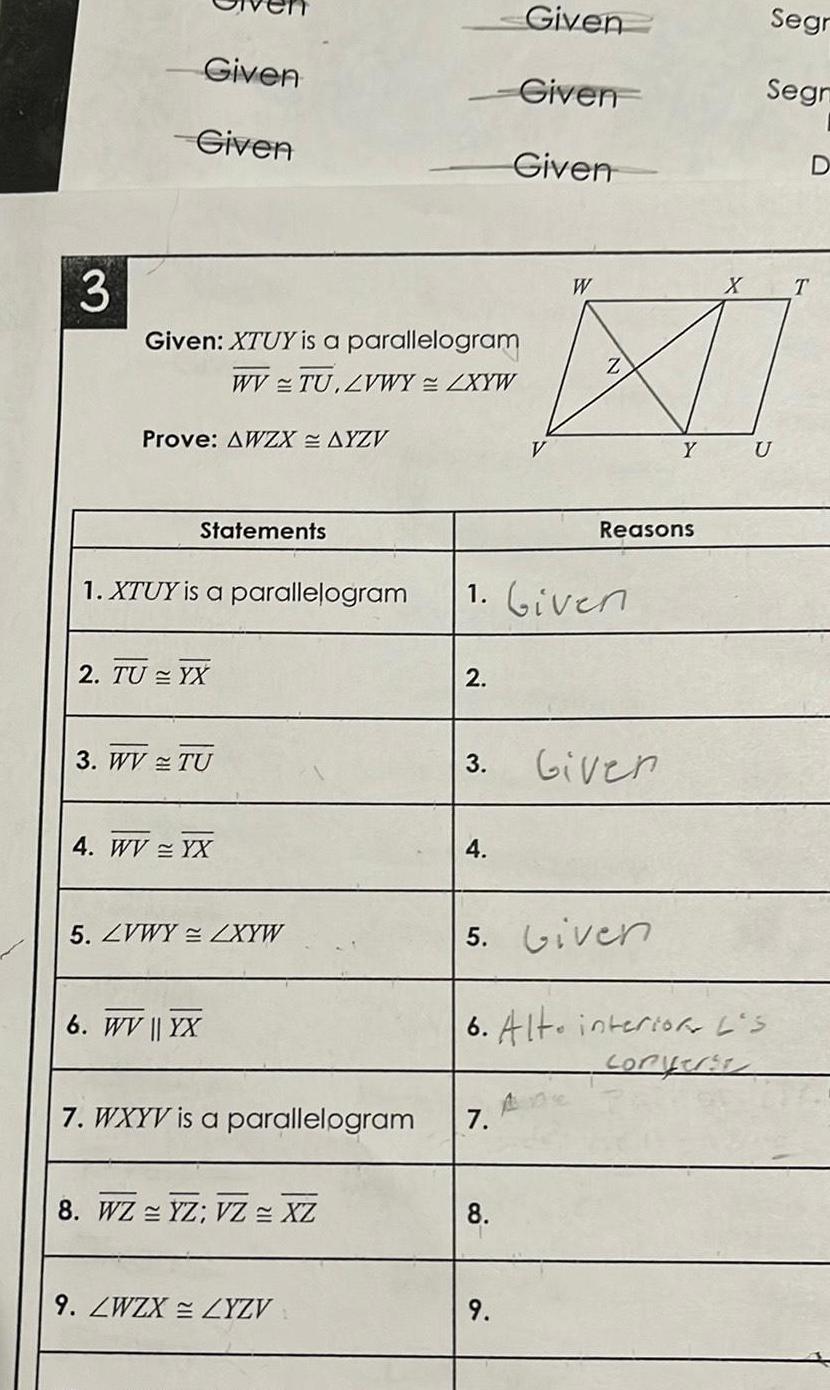 Given
Given
Segr
Given
Given
Segr
Given
Given
D
3
W X T
Given: XTUY is a parallelogram
WV ≅ TU, ∠VWY ≅ ∠XYW
Z
Prove: ΔWZX ≅ ΔYZV
V Y U
Statements
Reasons
1. XTUY is a parallelogram
1. Given
2. TU ≅ YX
2.
3. WV ≅ TU
3. Given
4. WV ≅ YX
4.
5. ∠VWY ≅ ∠XYW
5. Given
6. WV || YX
6. Alt. interior L's
converse
7. WXYV is a parallelogram
7.
8. WZ ≅ YZ; VZ ≅ XZ
8.
9. ∠WZX ≅ ∠YZV
9.